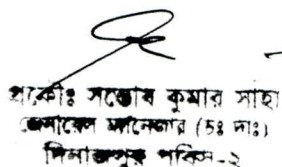 প্রকৌঃ সন্তোষ কুমার সাহা
জেনারেল ম্যানেজার (চঃ দাঃ)
দিনাজপুর পবিস-২